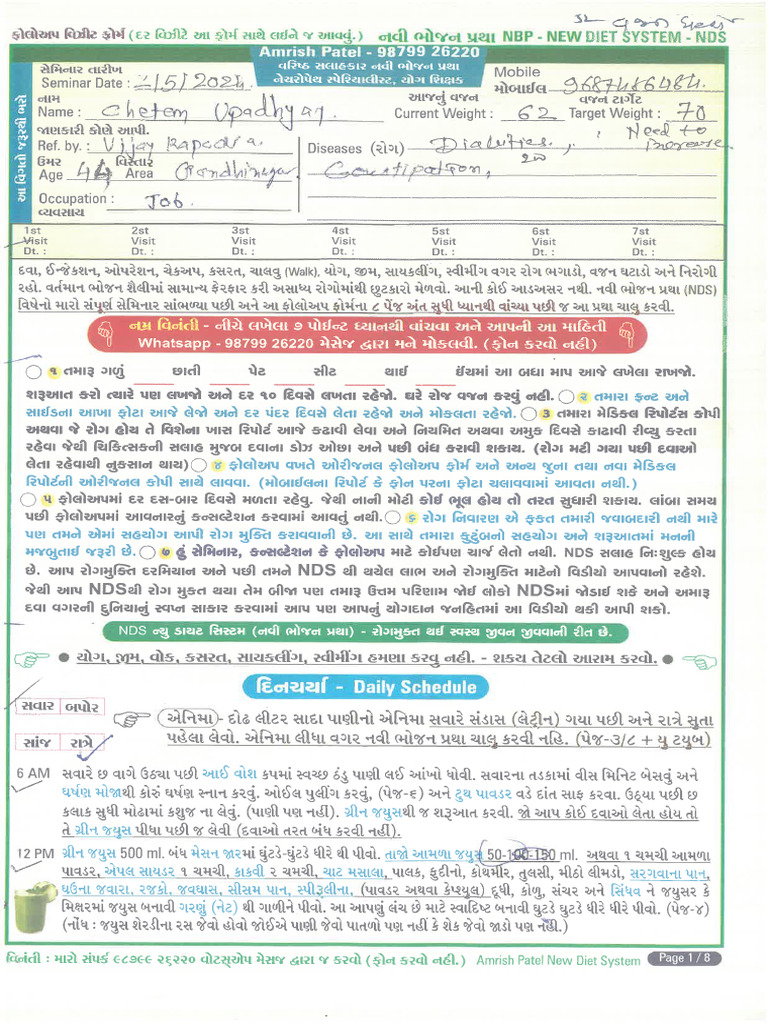 ફોલોઅપ વિઝીટ ફોર્મ (દર વિઝીટે આ ફોર્મ સાથે લઈને જ આવવું.) નવી ભોજન પ્રથા NBP - NEW DIET SYSTEM - NDS
Amrish Patel - 98799 26220
વરિષ્ઠ સલાહકાર નવી ભોજન પ્રથા
નેચરોપેથ સ્પેશિયાલીસ્ટ, યોગ શિક્ષક
સેમિનાર તારીખ
Seminar Date : 2/5/2024
Mobile
મોબાઈલ 9687486484
નામ
Name : Chetan Upadhyay
આજનું વજન
Current Weight : 62
વજન ટાર્ગેટ
Target Weight : 70
Need to increase
જાણકારી કોણે આપી.
Ref. by. : Vijay Kapadia
Diseases (રોગ) : Diabities,
ઉંમર
Age 44
વિસ્તાર
Area Gandhinagar
Constipation,
Occupation : Job
વ્યવસાય
આ વિગતો જરૂરથી ભરો
1st Visit Dt. : 2nd Visit Dt. : 3st Visit Dt. : 4st Visit Dt. : 5st Visit Dt. : 6st Visit Dt. : 7st Visit Dt. :
દવા, ઈન્જેકશન, ઓપરેશન, ચેકઅપ, કસરત, ચાલવુ (Walk), યોગ, જીમ, સાયકલીંગ, સ્વીમીંગ વગર રોગ ભગાડો, વજન ઘટાડો અને નિરોગી
રહો. વર્તમાન ભોજન શૈલીમાં સામાન્ય ફેરફાર કરી અસાધ્ય રોગોમાંથી છુટકારો મેળવો. આની કોઈ આડઅસર નથી. નવી ભોજન પ્રથા (NDS)
વિષેનો મારો સંપૂર્ણ સેમિનાર સાંભળ્યા પછી અને આ ફોલોઅપ ફોર્મના ૮ પેંજ અંત સુધી ધ્યાનથી વાંચ્યા પછી જ આ પ્રથા ચાલુ કરવી.
નમ્ર વિનંતી - નીચે લખેલા ૭ પોઈન્ટ ધ્યાનથી વાંચવા અને આપની આ માહિતી
Whatsapp - 98799 26220 મેસેજ દ્વારા મને મોકલવી. (ફોન કરવો નહી)
૧ તમારૂ ગળું છાતી પેટ સીટ થાઈ ઈંચમાં આ બધા માપ આજે લખેલા રાખજો.
શરૂઆત કરો ત્યારે પણ લખજો અને દર ૧૦ દિવસે લખતા રહેજો. ઘરે રોજ વજન કરવું નહી. ૨ તમારા ફ્રન્ટ અને
સાઈડના આખા ફોટા આજે લેજો અને દર પંદર દિવસે લેતા રહેજો અને મોકલતા રહેજો. ૩ તમારા મેડિકલ રિપોર્ટસ કોપી
અથવા જે રોગ હોય તે વિશેના ખાસ રિપોર્ટ આજે કઢાવી લેવા અને નિયમિત અથવા અમુક દિવસે કાઢાવી રીવ્યુ કરતા
રહેવા જેથી ચિકિત્સકની સલાહ મુજબ દવાના ડોઝ ઓછા અને પછી બંધ કરાવી શકાય. (રોગ મટી ગયા પછી દવાઓ
લેતા રહેવાથી નુકસાન થાય) ૪ ફોલોઅપ વખતે ઓરીજનલ ફોલોઅપ ફોર્મ અને અન્ય જુના તથા નવા મેડિકલ
રિપોર્ટની ઓરીજનલ કોપી સાથે લાવવા. (મોબાઈલના રિપોર્ટ કે ફોન પરના ફોટા ચલાવવામાં આવતા નથી.)
૫ ફોલોઅપમાં દર દસ-બાર દિવસે મળતા રહેવુ. જેથી નાની મોટી કોઈ ભૂલ હોય તો તરત સુધારી શકાય. લાંબા સમય
પછી ફોલોઅપમાં આવનારનું કન્સલ્ટેશન કરવામાં આવતું નથી. ૬ રોગ નિવારણ એ ફકત તમારી જવાબદારી નથી મારે
પણ તમને એમાં સહયોગ આપી રોગ મુક્તિ કરાવવાની છે. આ સાથે તમારા કુટુંબનો સહયોગ અને શરૂઆતમાં મનની
મજબુતાઈ જરૂરી છે. ૭ હું સેમિનાર, કન્સલ્ટેશન કે ફોલોઅપ માટે કોઈપણ ચાર્જ લેતો નથી. NDS સલાહ નિઃશુલ્ક હોય
છે. આપ રોગમુક્તિ દરમિયાન અને પછી તમને NDS થી થયેલ લાભ અને રોગમુક્તિ માટેનો વિડીયો આપવાનો રહેશે.
જેથી આપ NDSથી રોગ મુક્ત થયા તેમ બીજા પણ તમારૂ ઉત્તમ પરિણામ જોઈ લોકો NDSમાં જોડાઈ શકે અને અમારૂ
દવા વગરની દુનિયાનું સ્વપ્ન સાકાર કરવામાં આપ પણ આપનું યોગદાન જનહિતમાં આ વિડીયો થકી આપી શકો.
NDS ન્યુ ડાયટ સિસ્ટમ (નવી ભોજન પ્રથા) - રોગમુક્ત થઈ સ્વસ્થ જીવન જીવવાની રીત છે.
• યોગ, જીમ, વોક, કસરત, સાયકલીંગ, સ્વીમીંગ હમણા કરવુ નહી. - શકય તેટલો આરામ કરવો. •
દિનચર્યા - Daily Schedule
સવાર બપોર
સાંજ રાત્રે
એનિમા - દોઢ લીટર સાદા પાણીનો એનિમા સવારે સંડાસ (લેટ્રીન) ગયા પછી અને રાત્રે સુતા
પહેલા લેવો. એનિમા લીધા વગર નવી ભોજન પ્રથા ચાલુ કરવી નહિ. (પેજ-૩/૮ + યુ ટયુબ)
6 AM સવારે છ વાગે ઉઠ્યા પછી આઈ વોશ કપમાં સ્વચ્છ ઠંડુ પાણી લઈ આંખો ધોવી. સવારના તડકામાં વીસ મિનિટ બેસવું અને
ઘર્ષણ મોજાથી કોરું ઘર્ષણ સ્નાન કરવું. ઓઈલ પુલીંગ કરવું, (પેજ-૬) અને ટુથ પાવડર વડે દાંત સાફ કરવા. ઉઠ્યા પછી છ
કલાક સુધી મોઢામાં કશુજ ના લેવું. (પાણી પણ નહીં). ગ્રીન જયુસથી જ શરૂઆત કરવી. જો આપ કોઈ દવાઓ લેતા હોય તો
તે ગ્રીન જયુસ પીધા પછી જ લેવી (દવાઓ તરત બંધ કરવી નહીં).
12 PM ગ્રીન જયુસ 500 ml. બંધ મેસન જારમાં ઘુંટડે-ઘુંટડે ધીરે થી પીવો. તાજો આમળા જયુસ 50-100-150 ml. અથવા ૧ ચમચી આમળા
પાવડર, એપલ સાયડર ૧ ચમચી, કાકવી ૨ ચમચી, ચાટ મસાલા, પાલક, ફુદીનો, કોથમીર, તુલસી, મીઠો લીમડો, સરગવાના પાન,
ઘઉંના જવારા, રજકો, જવઘાસ, સીસમ પાન, સ્પીરૂલીના, (પાવડર અથવા કેપ્શ્યુલ) દૂધી, કોળુ, સંચર અને સિંધવ ને જયુસર કે
મિક્ષરમાં જયુસ બનાવી ગરણું (નેટ) થી ગાળીને પીવો. આ આપણું લંચ છે માટે સ્વાદિષ્ટ બનાવી ઘુટડે ઘુટડે ધીરે ધીરે પીવો. (પેજ-૪)
(નોંધ : જયુસ શેરડીના રસ જેવો હોવો જોઈએ પાણી જેવો પાતળો પણ નહીં કે શેક જેવો જાડો પણ નહીં.)
વિનંતી : મારો સંપર્ક ૯૮૭૯૯ ૨૬૨૨૦ વોટસ્એપ મેસજ દ્વારા જ કરવો (ફોન કરવો નહી.) Amrish Patel New Diet System Page 1 / 8